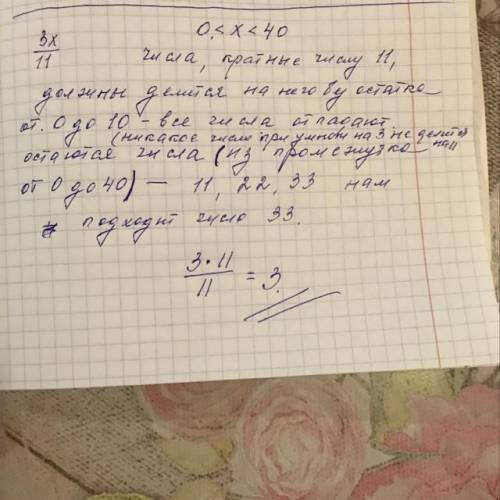 0 < x < 40
3x/11 числа, кратные числу 11,
должны делится на него без остатка
от 0 до 10 - все числа отпадают
(никакое число при умнож на 3 не делится на 11
остаются числа (из промежутка
от 0 до 40) — 11, 22, 33 нам
подходит число 33.
3·11/11 = 3.